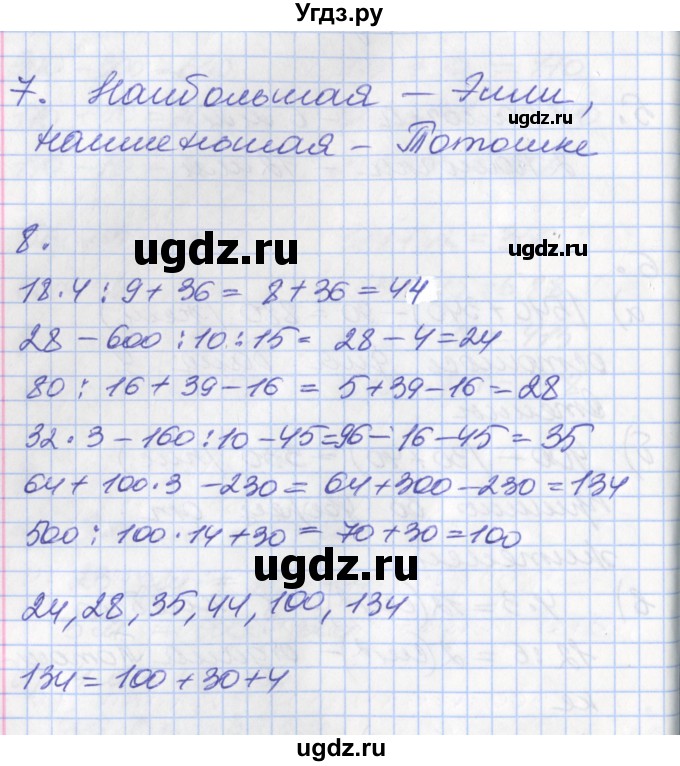 Угдз.ру
7. Наибольшая – Элли,
наименьшая – Тотошке
8.
ugdz.ru
ugdz.ru
18·4:9+36= 8+36=44
28-600:10:15= 28-4=24
80:16+39-16 = 5+39-16=28
32·3-160:10-45=96-16-45=35
64+100·3-230= 64+300-230=134
500:100·14+30= 70+30=100
ugdz.ru
24, 28, 35, 44, 100, 134
134=100+30+4
ugdz.ru